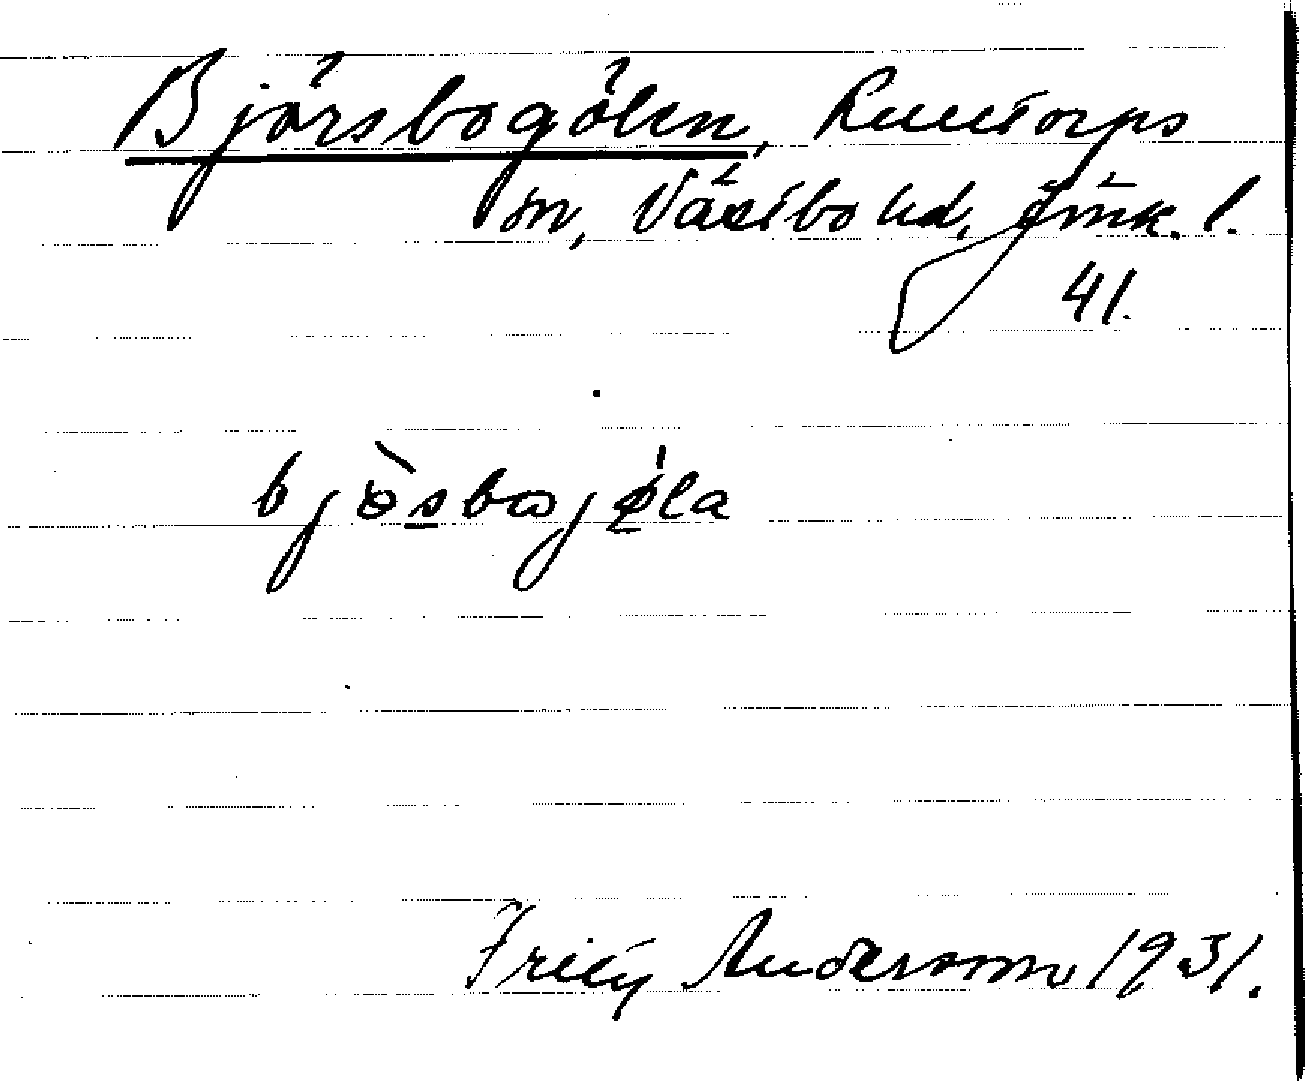 Björsbogölen, Rumtorps
sn, Västbo hd, Jönk. l.
41.
bjösbogöla
Fritz Andersson 1931.